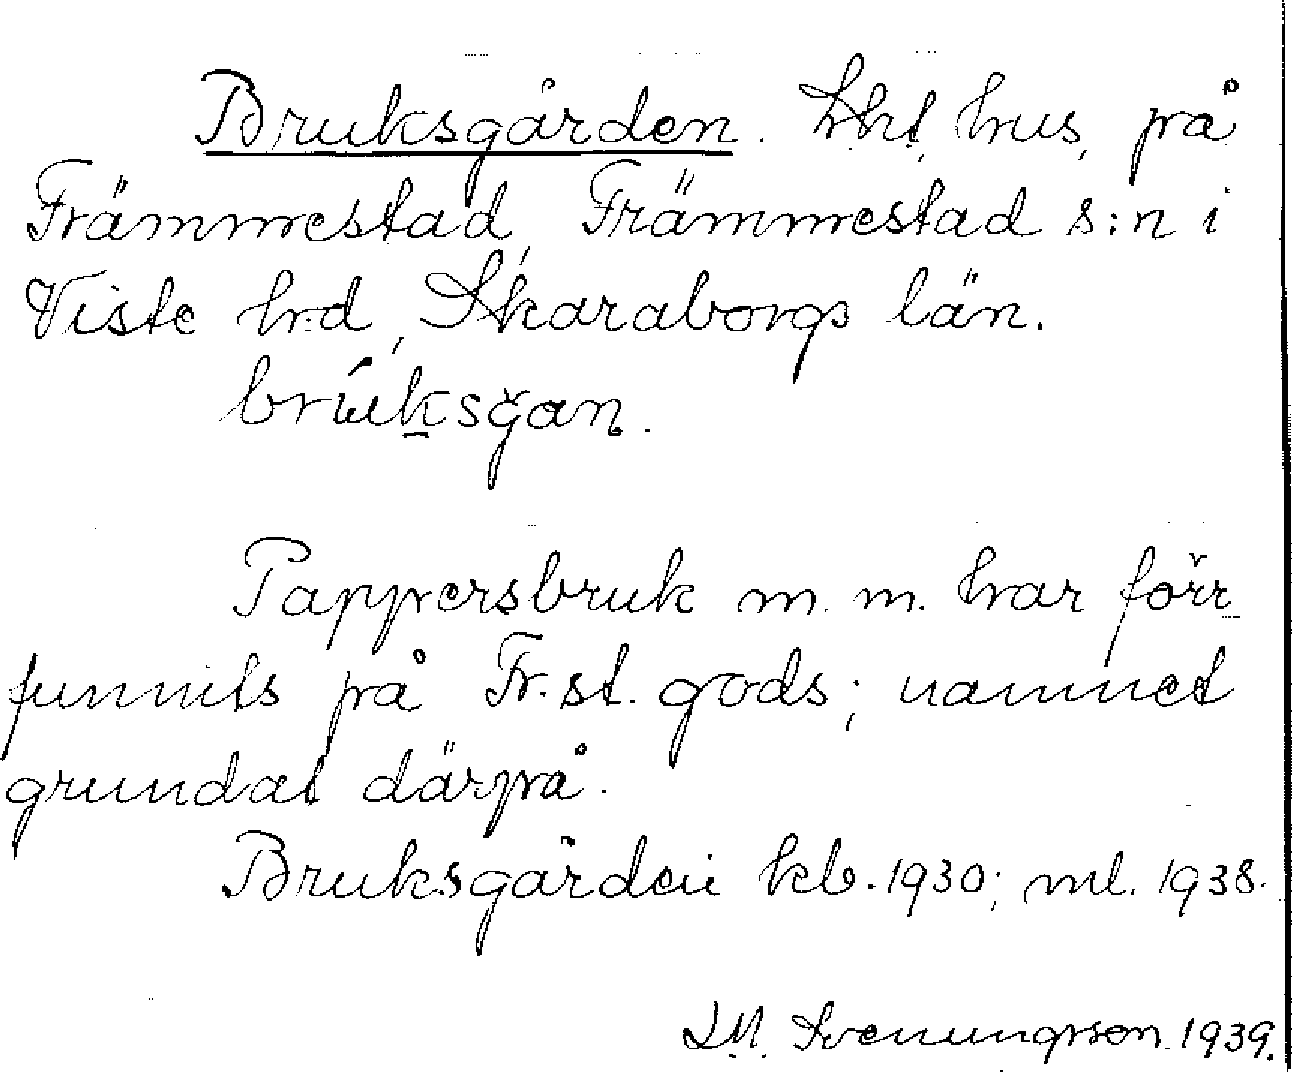 Bruksgården. hus, på
Främmestad, Främmestad s:n i
Viste h:d, Skaraborgs län.
Pappersbruk m. m. har förr
funnits på Fr.st. gods; namnet
grundat därpå.
Bruksgården kb. 1930; ml. 1938.
Svenungsson 1939.